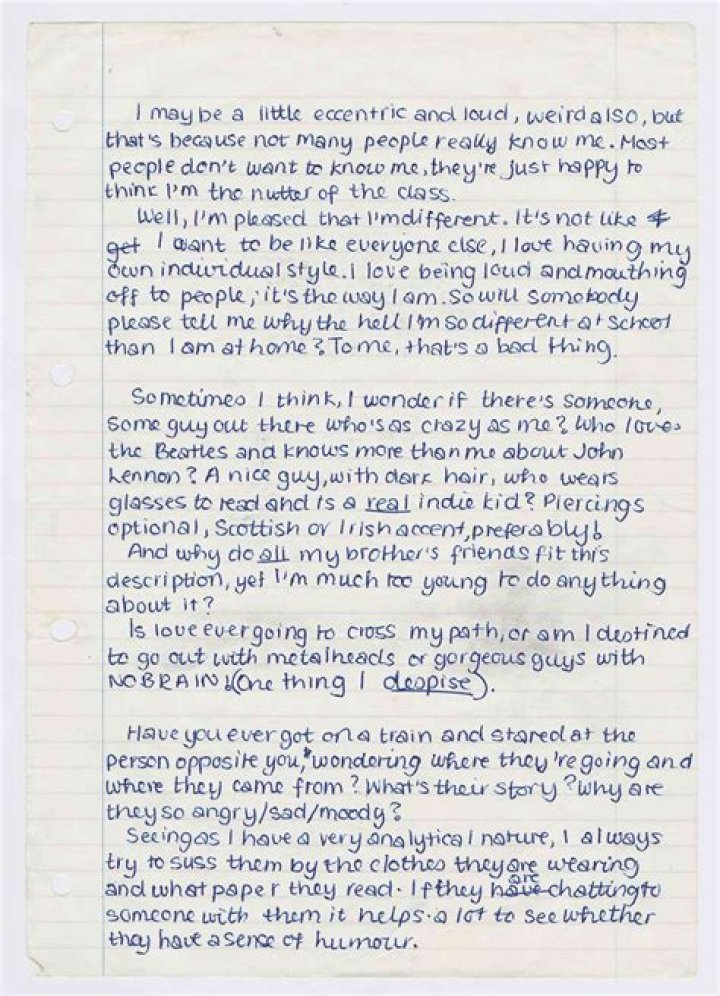 I may be a little eccentric and loud, weird also, but
that's because not many people really know me. Most
people don't want to know me, they're just happy to
think I'm the nutter of the class.
Well, I'm pleased that I'm different. It's not like
get I want to be like everyone else, I love having my
own individual style. I love being loud and mouthing
off to people, it's the way I am. So will somebody
please tell me why the hell I'm so different at school
than I am at home? To me, that's a bad thing.
Sometimes I think, I wonder if there's someone,
some guy out there who's as crazy as me? Who loves
the Beatles and knows more than me about John
Lennon? A nice guy, with dark hair, who wears
glasses to read and is a real indie kid? Piercings
optional, Scottish or Irish accent, preferably!
And why do all my brother's friends fit this
description, yet I'm much too young to do anything
about it?
Is love ever going to cross my path, or am I destined
to go out with metalheads or gorgeous guys with
NO BRAIN! (One thing I despise).
Have you ever got on a train and stared at the
person opposite you, wondering where they're going and
where they came from? What's their story? Why are
they so angry/sad/moody?
Seeing as I have a very analytical nature, I always
try to suss them by the clothes they are wearing
and what paper they read. If they have are chatting to
someone with them it helps a lot to see whether
they have a sense of humour.